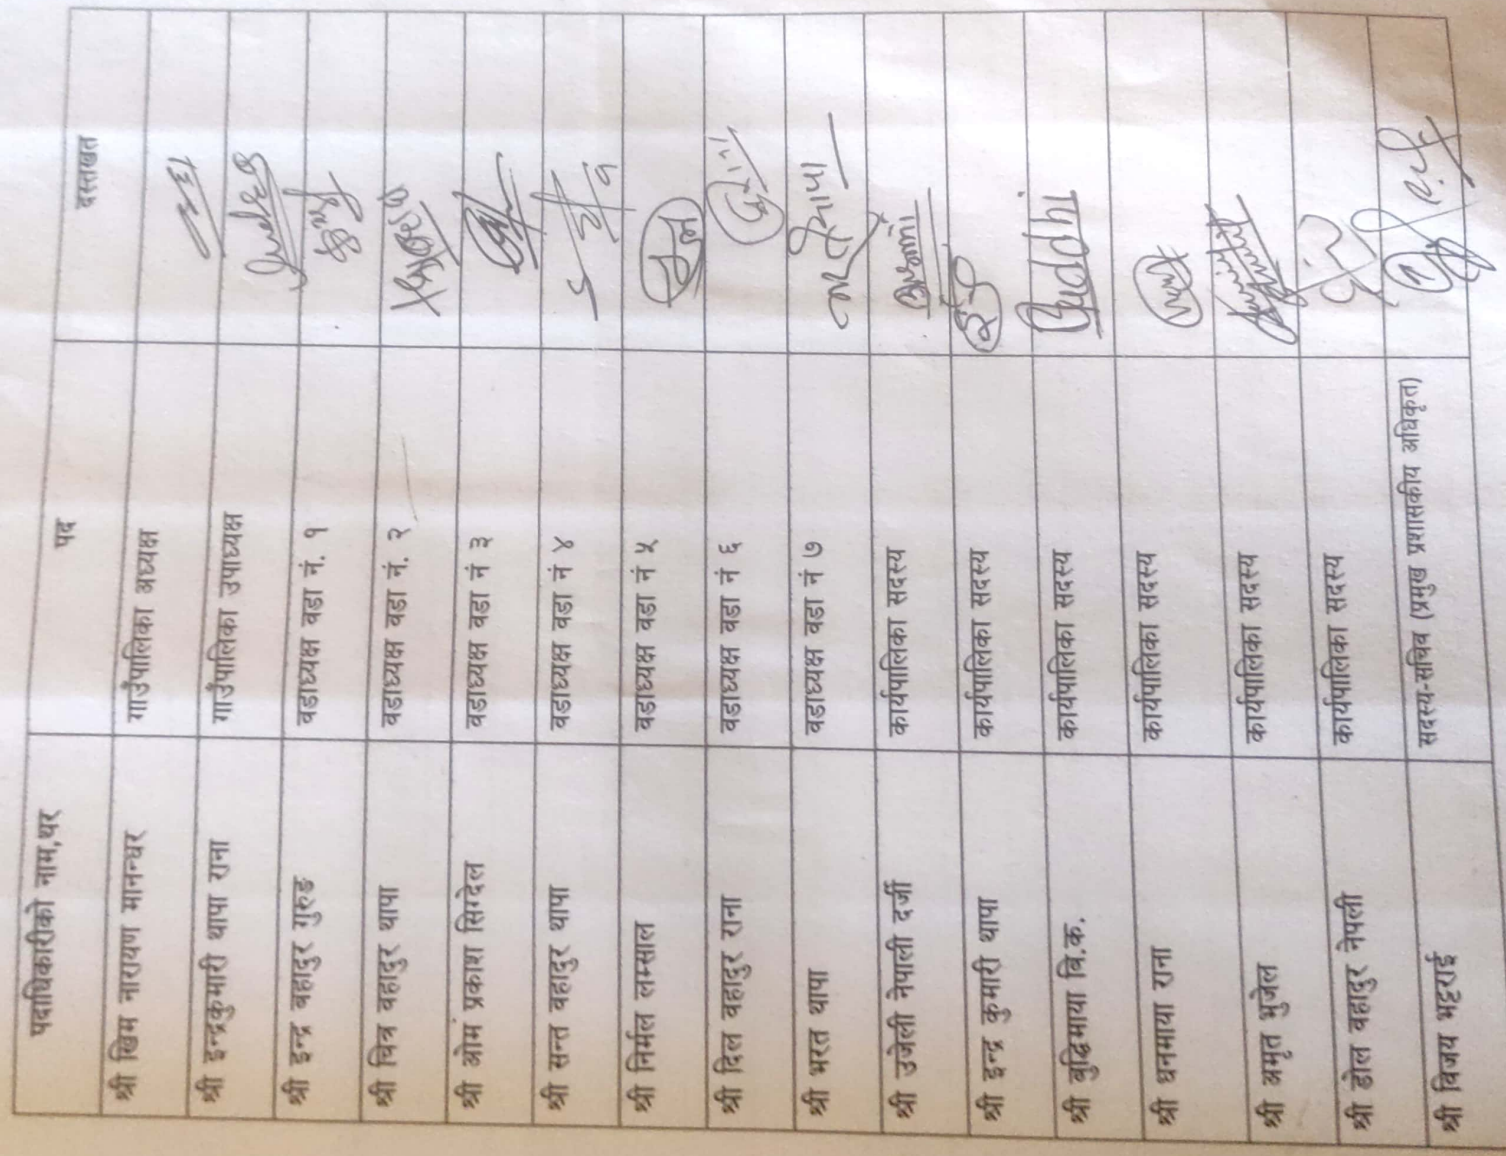 पदाधिकारीको नाम,थर पद दस्तखत
श्री खिम नारायण मानन्धर गाउँपालिका अध्यक्ष
श्री इन्द्रकुमारी थापा राना गाउँपालिका उपाध्यक्ष
श्री इन्द्र बहादुर गुरुङ वडाध्यक्ष वडा नं. १
श्री चित्र बहादुर थापा वडाध्यक्ष वडा नं. २
श्री ओमं प्रकाश सिग्देल वडाध्यक्ष वडा नं ३
श्री सन्त बहादुर थापा वडाध्यक्ष वडा नं ४
श्री निर्मल लम्साल वडाध्यक्ष वडा नं ५
श्री दिल बहादुर राना वडाध्यक्ष वडा नं ६
श्री भरत थापा वडाध्यक्ष वडा नं ७
श्री उजेली नेपाली दर्जी कार्यपालिका सदस्य
श्री इन्द्र कुमारी थापा कार्यपालिका सदस्य
श्री बुद्धिमाया बि.क. कार्यपालिका सदस्य Buddhi
श्री धनमाया राना कार्यपालिका सदस्य
श्री अमृत भुजेल कार्यपालिका सदस्य
श्री डोल बहादुर नेपली कार्यपालिका सदस्य
श्री विजय भट्टराई सदस्य-सचिव (प्रमुख प्रशासकीय अधिकृत)